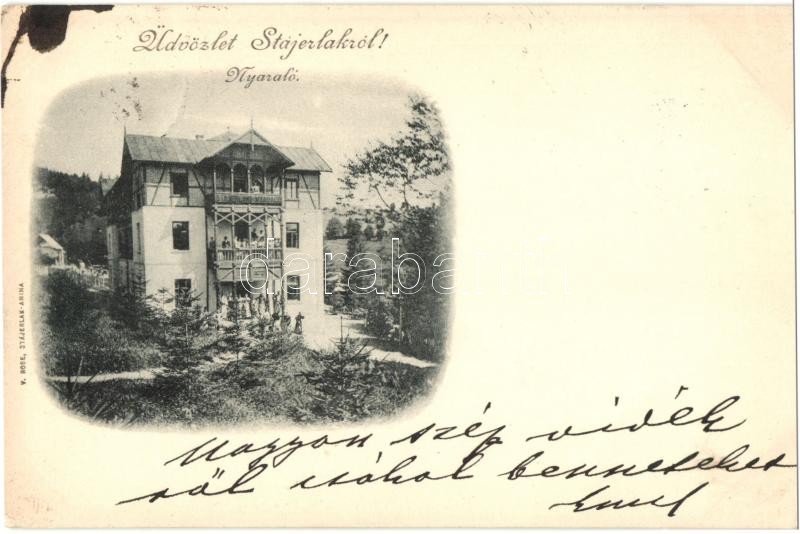 Üdvözlet Stájerlakról!
Nyaraló.
darabanth
V. ROSE, STÁJERLAK-ANINA
Nagyon szép vidék
ról csókol benneteket
Emil